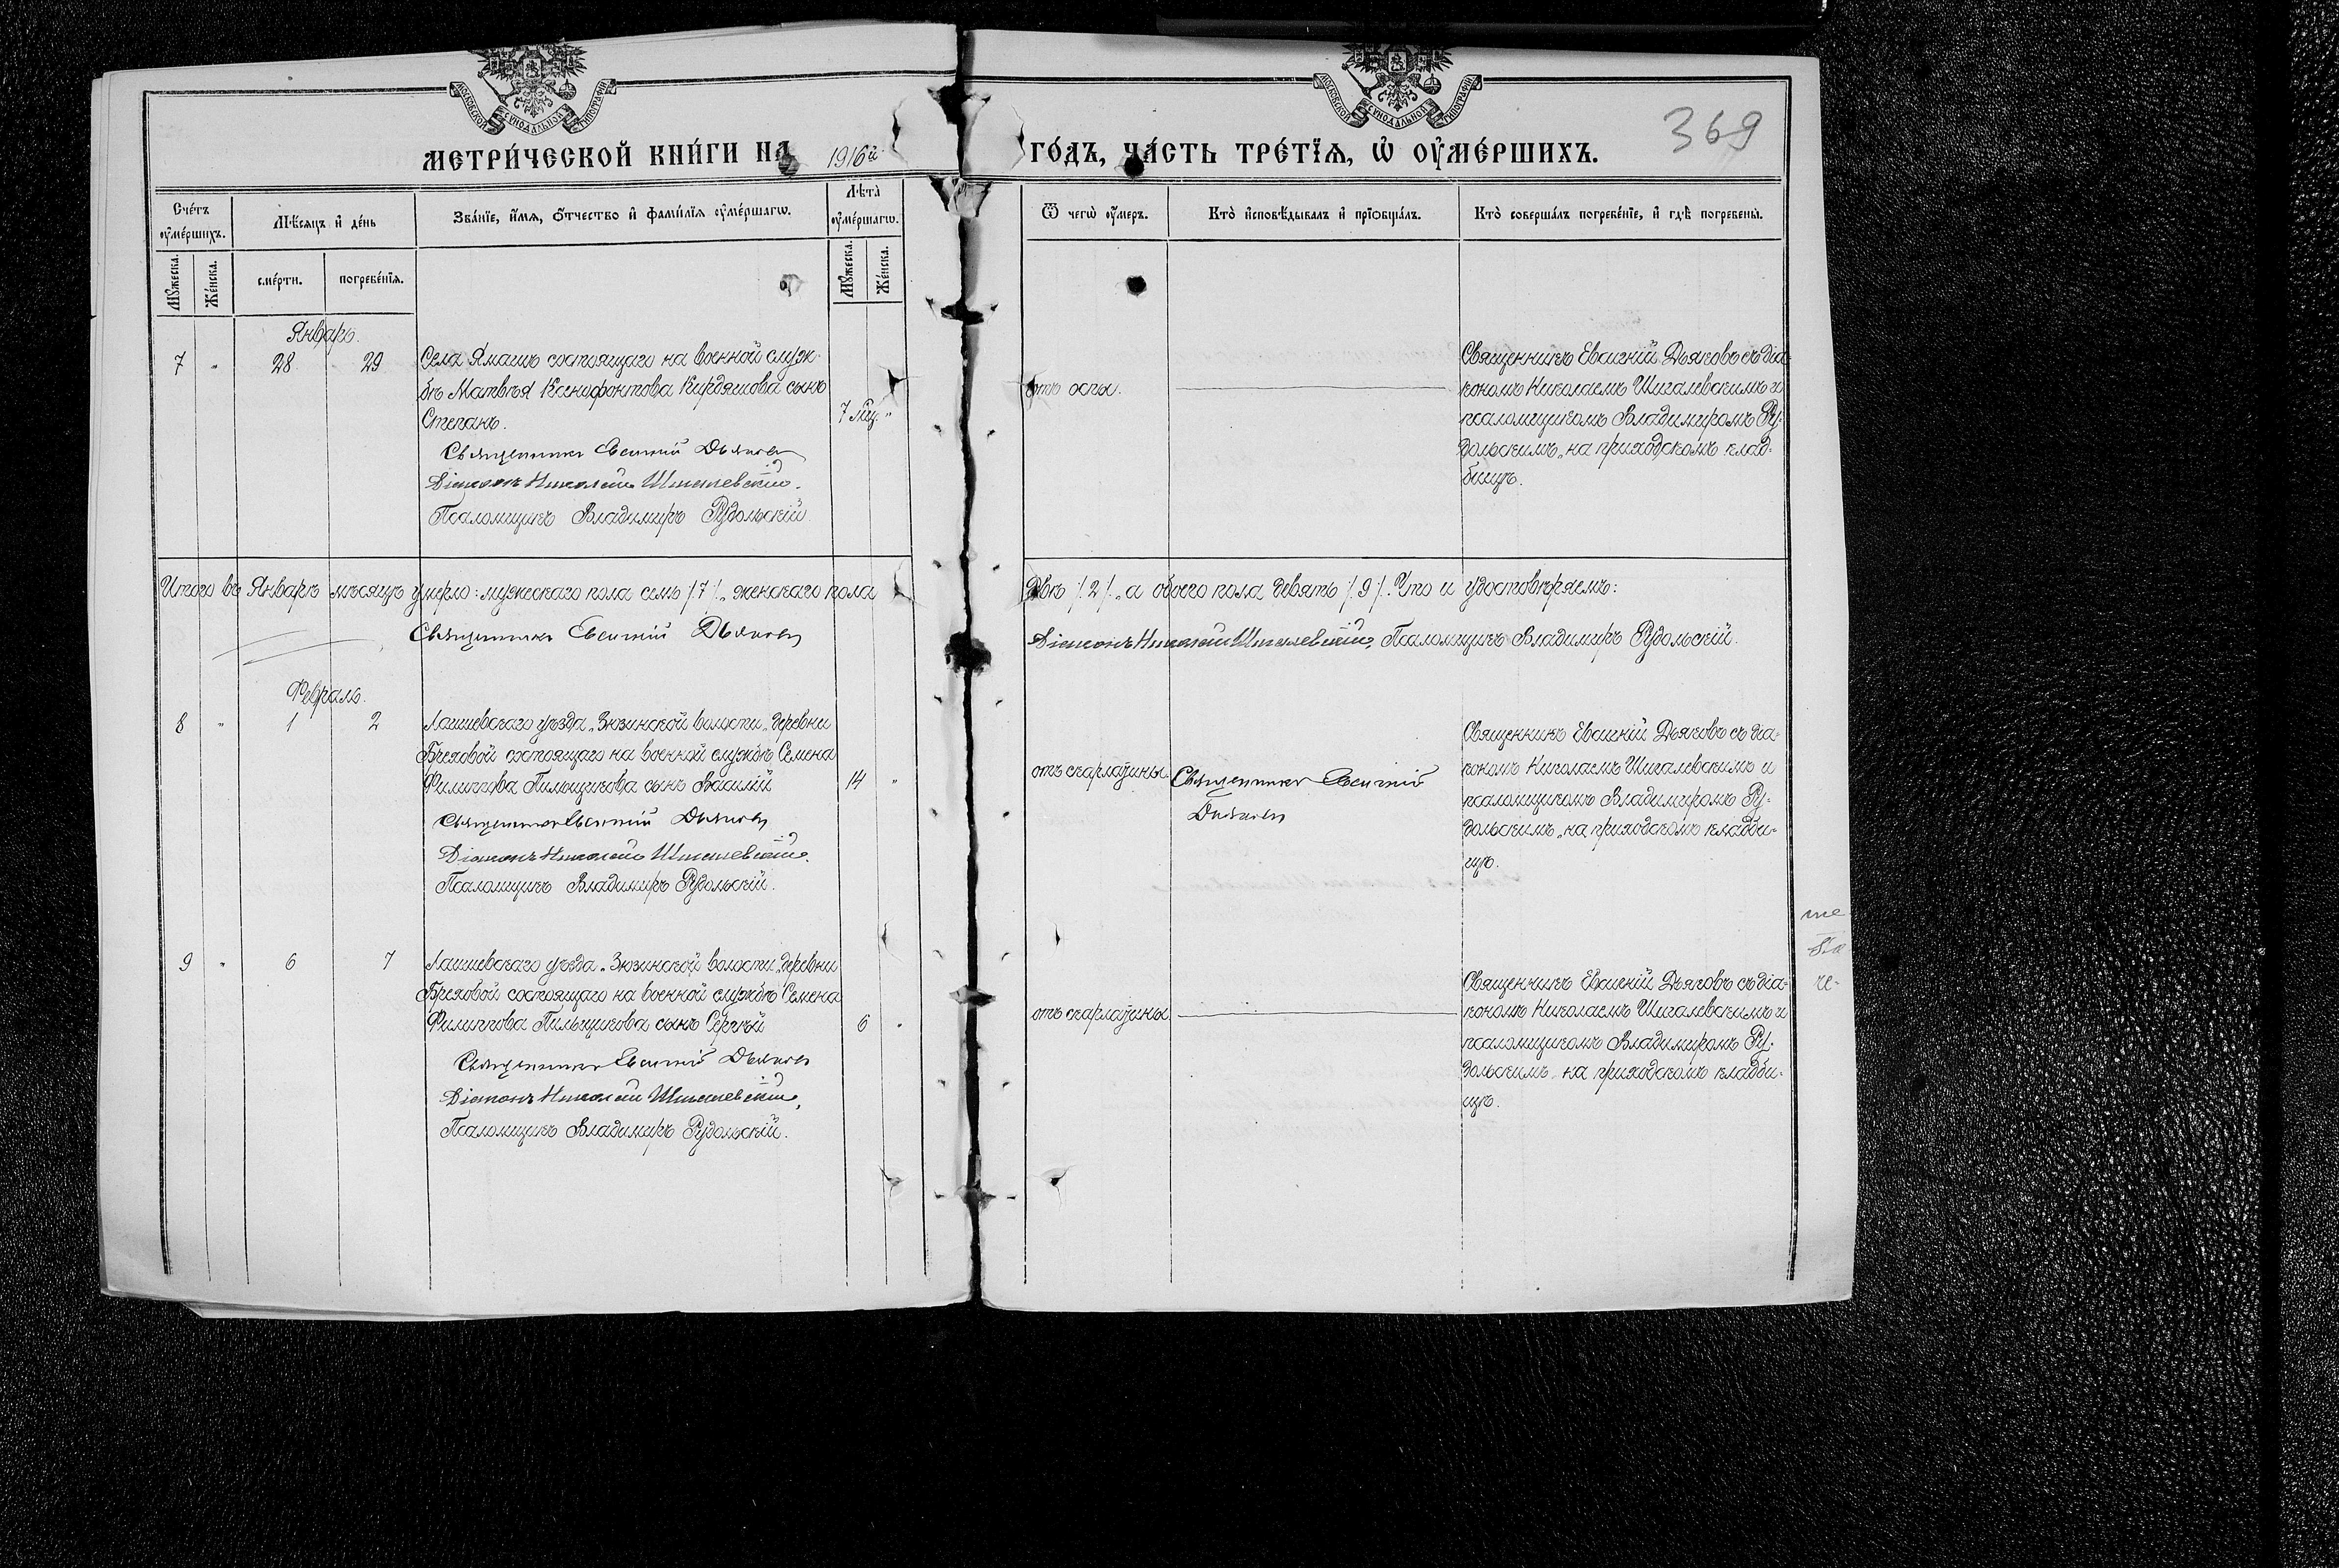 МОСКОВСКОЙ СѴНОДАЛЬНОЙ ТИПОГРАФІИ
МОСКОВСКОЙ СѴНОДАЛЬНОЙ ТИПОГРАФІИ
369
МЕТРИ́ЧЕСКОЙ КНИ́ГИ НА 1916й
ГО́ДЪ, ЧА́СТЬ ТРЕ́ТЇѦ, Ѡ҆ ОУ҆МЕ́РШИХЪ.
Сче́тъ оу҆ме́ршихъ.
Мѣ́сѧцъ и҆ де́нь
Зва́нїе, и҆́мѧ, ѻ҆́тчество и҆ фами́лїѧ оу҆ме́ршагѡ.
Лѣ́та оу҆ме́ршагѡ.
Ѿ чегѡ̀ оу҆́меръ.
Кто̀ и҆сповѣ́дывалъ и҆ прїѡбща́лъ.
Кто̀ соверша́лъ погребе́нїе, и҆ гдѣ̀ погребены̀.
Мꙋ́жеска.
Же́нска.
сме́рти.
погребе́нїѧ.
Мꙋ́жеска.
Же́нска.
Январь.
7 " 28 29 Села Ямашъ состоящаго на военной служ-
бѣ Матвѣя Ксенофонтова Кирдяшова сынъ
Степанъ. 7 мѣц. "
Священникъ Евгеній Дьяковъ
Діаконъ Николай Шигалевскій.
Псаломщикъ Владимиръ Рудольскій.
отъ оспы.
Священникъ Евгеній Дьяковъ съ діа-
кономъ Николаемъ Шигалевскимъ и
псаломщикомъ Владимиромъ Ру-
дольскимъ, на приходскомъ клад-
бищѣ.
Итого въ Январѣ мѣсяцѣ умерло: мужескаго пола семь /7/, женскаго пола
двѣ /2/, а обоего пола девять /9/. Что и удостовѣряемъ:
Священникъ Евгеній Дьяковъ
Діаконъ Николай Шигалевскій, Псаломщикъ Владимиръ Рудольскій.
Февраль.
8 " 1 2 Лаишевскаго уѣзда, Зюзинской волости, деревни
Бреховой состоящаго на военной службѣ Семена
Филиппова Пильщикова сынъ Василій 14 "
Священникъ Евгеній Дьяковъ
Діаконъ Николай Шигалевскій.
Псаломщикъ Владимиръ Рудольскій.
отъ скарлатины
Священникъ Евгеній
Дьяковъ
Священникъ Евгеній Дьяковъ съ діа-
кономъ Николаемъ Шигалевскимъ и
псаломщикомъ Владимиромъ Ру-
дольскимъ, на приходскомъ кладби-
щѣ.
9 " 6 7 Лаишевскаго уѣзда, Зюзинской волости, деревни
Бреховой состоящаго на военной службѣ Семена
Филиппова Пильщикова сынъ Сергѣй 6 "
Священникъ Евгеній Дьяковъ
Діаконъ Николай Шигалевскій,
Псаломщикъ Владимиръ Рудольскій.
отъ скарлатины
Священникъ Евгеній Дьяковъ съ діа-
кономъ Николаемъ Шигалевскимъ и
псаломщикомъ Владимиромъ Ру-
дольскимъ, на приходскомъ кладби-
щѣ.